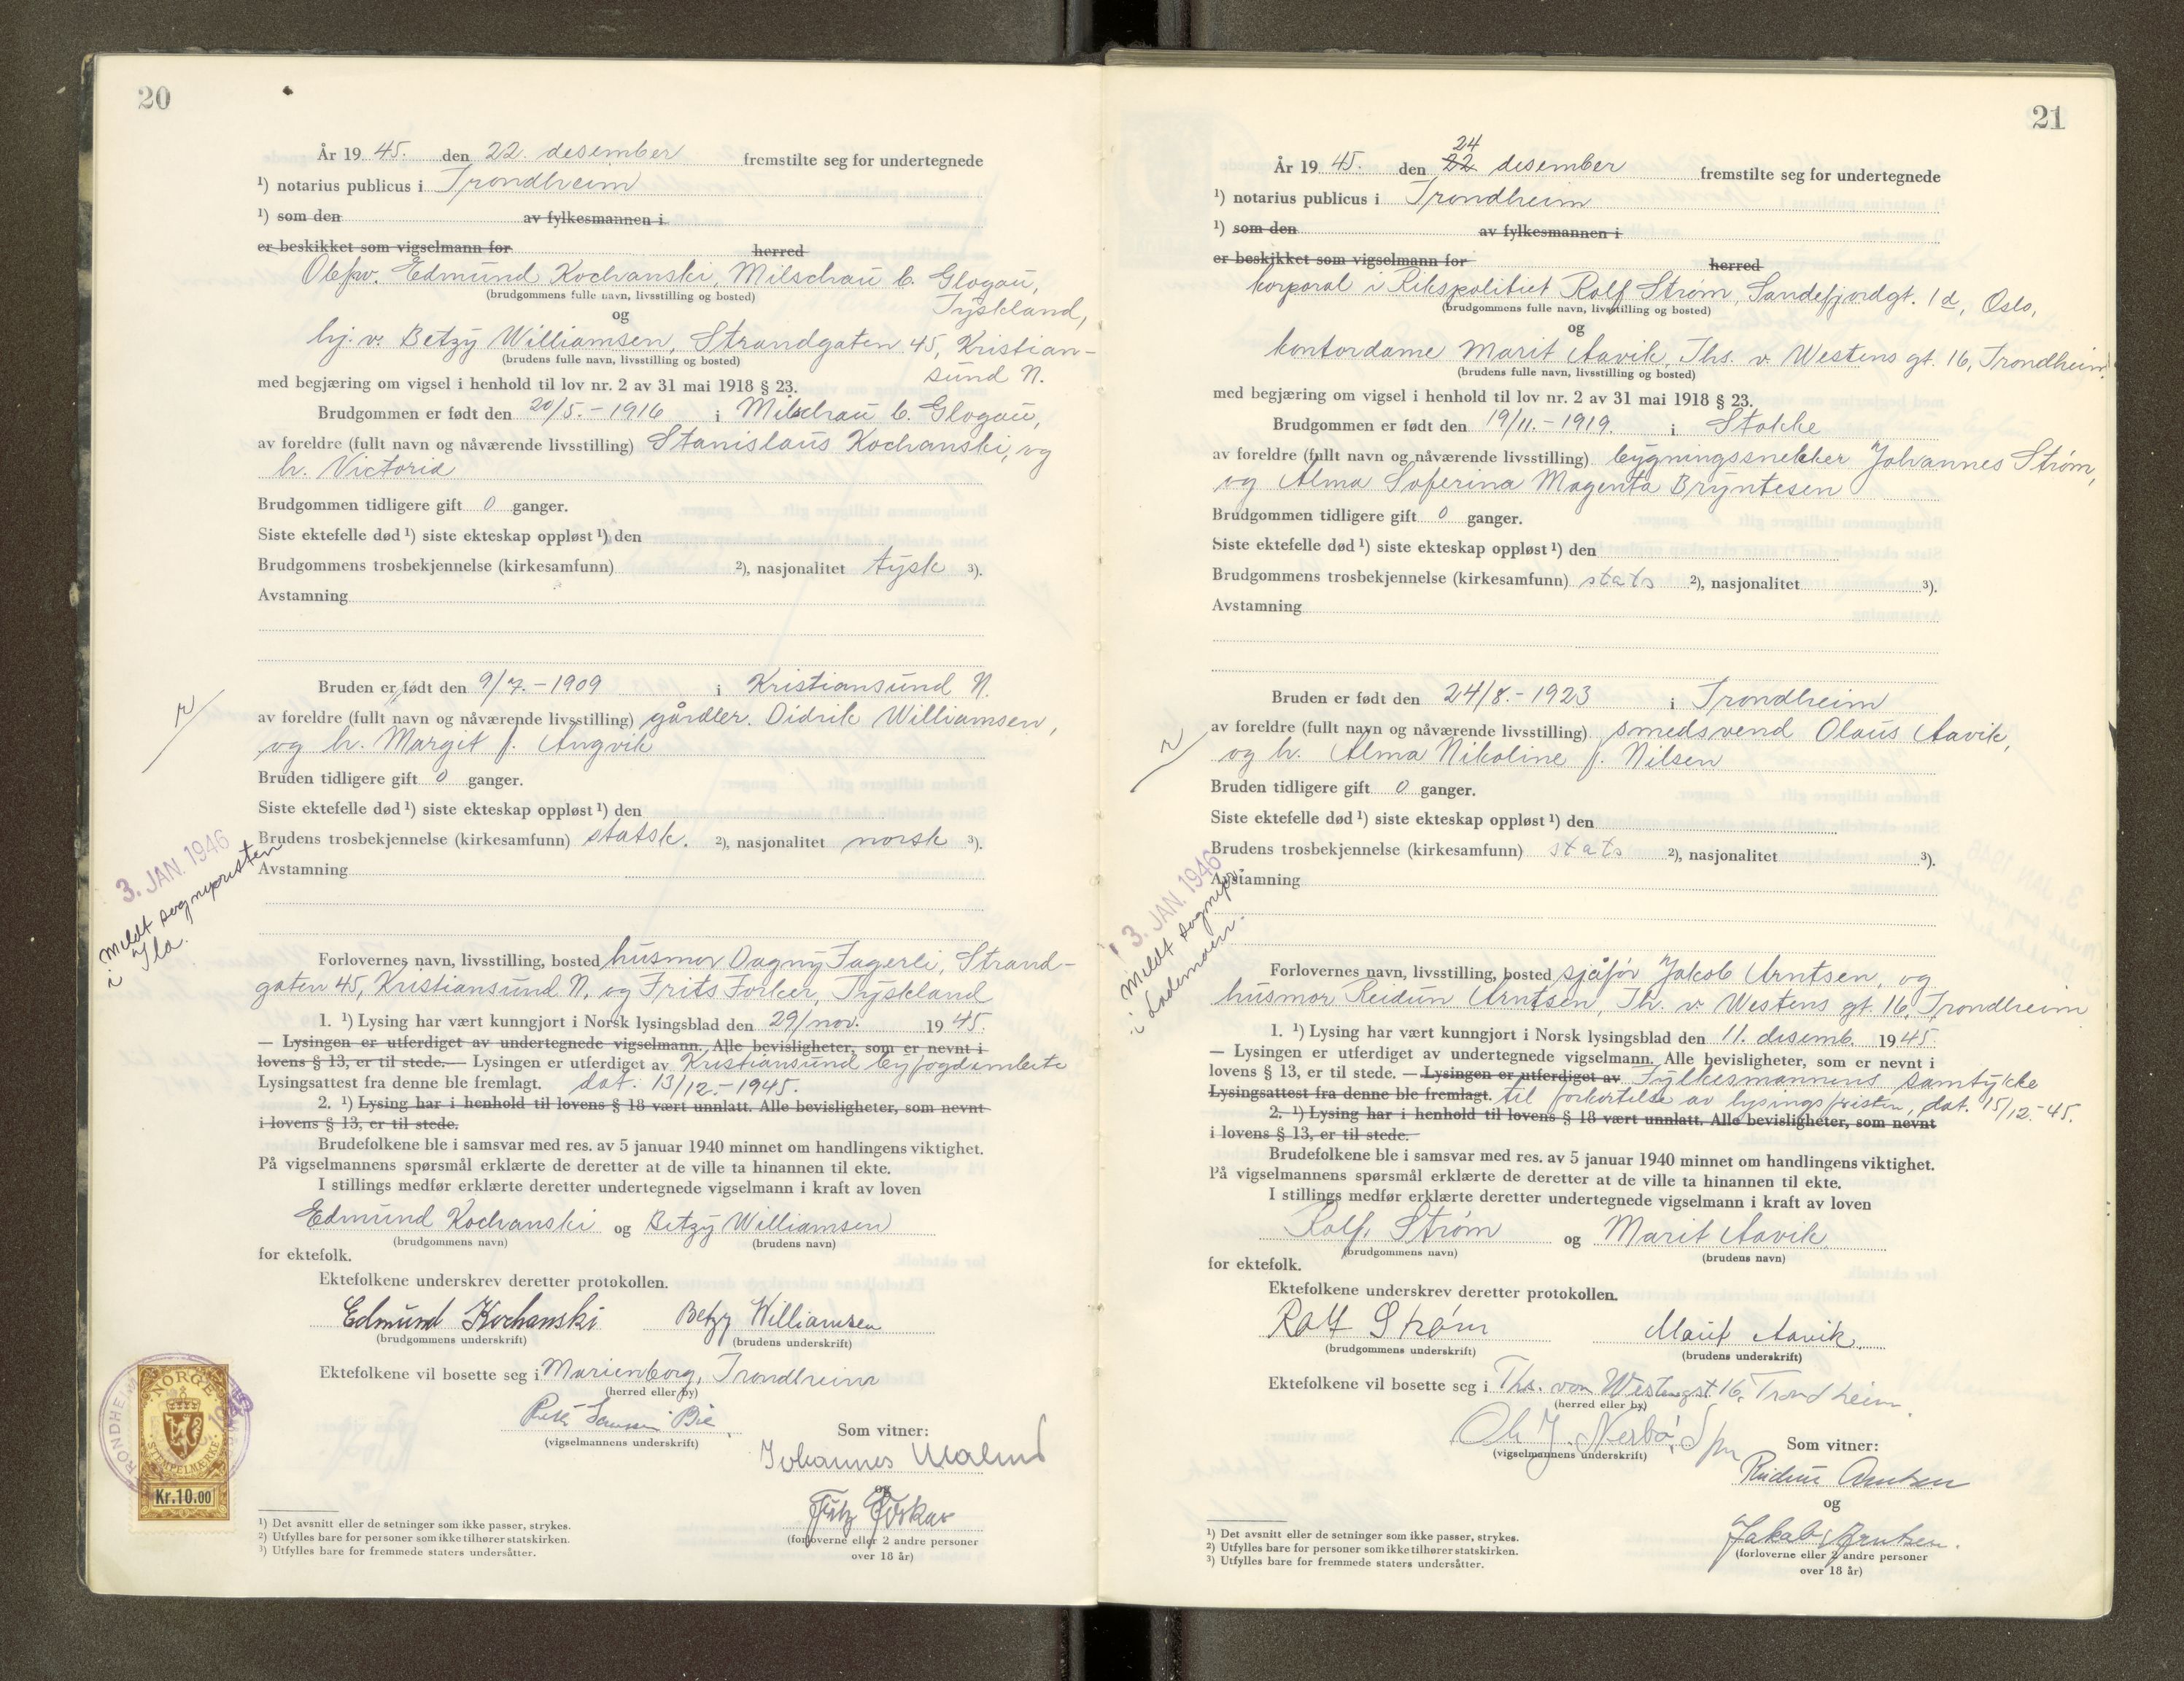 20
År 19 45. den 22. desember fremstilte seg for undertegnede
¹) notarius publicus i Trondheim
¹) som den av fylkesmannen i
er beskikket som vigselmann for herred
Edmund Kochanski, Milschau b. Glogau,
(brudgommens fulle navn, livsstilling og bosted)
Tyskland,
og
hj. v. Betzy Williamsen, Strandgaten 45, Kristian-
(brudens fulle navn, livsstilling og bosted)
sund N.
med begjæring om vigsel i henhold til lov nr. 2 av 31 mai 1918 § 23.
Brudgommen er født den 20/5.-1916 i Milschau b. Glogau,
av foreldre (fullt navn og nåværende livsstilling) Stanislaus Kochanski, og
h. Victoria
Brudgommen tidligere gift 0 ganger.
Siste ektefelle død ¹) siste ekteskap oppløst ¹) den
Brudgommens trosbekjennelse (kirkesamfunn) ²), nasjonalitet tysk ³).
Avstamning
Bruden er født den 9/7.-1909 i Kristiansund N.
av foreldre (fullt navn og nåværende livsstilling) gårdler. Didrik Williamsen,
og h. Margit f. Angvik
Bruden tidligere gift 0 ganger.
Siste ektefelle død ¹) siste ekteskap oppløst ¹) den
Brudens trosbekjennelse (kirkesamfunn) statsk. ²), nasjonalitet norsk ³).
Avstamning
3. JAN. 1946
meldt sognepresten
i Ila.
Forlovernes navn, livsstilling, bosted husmor Dagny Fagerli, Strand-
gaten 45, Kristiansund N. og Frits Forker, Tyskland
1. ¹) Lysing har vært kunngjort i Norsk lysingsblad den 29/nov. 19 45.
— Lysingen er utferdiget av undertegnede vigselmann. Alle bevisligheter, som er nevnt i
lovens § 13, er til stede. — Lysingen er utferdiget av Kristiansund byfogdembete
Lysingsattest fra denne ble fremlagt. dat. 13/12.-1945.
2. ¹) Lysing har i henhold til lovens § 18 vært unnlatt. Alle bevisligheter, som nevnt
i lovens § 13, er til stede.
Brudefolkene ble i samsvar med res. av 5 januar 1940 minnet om handlingens viktighet.
På vigselmannens spørsmål erklærte de deretter at de ville ta hinannen til ekte.
I stillings medfør erklærte deretter undertegnede vigselmann i kraft av loven
Edmund Kochanski og Betzy Williamsen
(brudgommens navn) (brudens navn)
for ektefolk.
Ektefolkene underskrev deretter protokollen.
Edmund Kochanski Betzy Williamsen
(brudgommens underskrift) (brudens underskrift)
Ektefolkene vil bosette seg i Marienborg, Trondheim
(herred eller by)
(vigselmannens underskrift)
Som vitner:
Johannes
og
(forloverne eller 2 andre personer
over 18 år)
NORGE
STEMPELMERKE
Kr.10.00
¹) Det avsnitt eller de setninger som ikke passer, strykes.
²) Utfylles bare for personer som ikke tilhører statskirken.
³) Utfylles bare for fremmede staters undersåtter.
21
24
År 19 45. den 22 desember fremstilte seg for undertegnede
¹) notarius publicus i Trondheim
¹) som den av fylkesmannen i
er beskikket som vigselmann for herred
korporal i Rikspolitiet Rolf Strøm, Sandefjordgt. 1d, Oslo,
(brudgommens fulle navn, livsstilling og bosted)
og
kontordame Marit Aavik, Ths. v. Westens gt. 16, Trondheim.
(brudens fulle navn, livsstilling og bosted)
med begjæring om vigsel i henhold til lov nr. 2 av 31 mai 1918 § 23.
Brudgommen er født den 19/11.-1919. i Stokke
av foreldre (fullt navn og nåværende livsstilling) bygningssnekker Johannes Strøm,
og Alma Soferina Magenta Bryntesen
Brudgommen tidligere gift 0 ganger.
Siste ektefelle død ¹) siste ekteskap oppløst ¹) den
Brudgommens trosbekjennelse (kirkesamfunn) stats ²), nasjonalitet ³).
Avstamning
Bruden er født den 24/8.-1923 i Trondheim
av foreldre (fullt navn og nåværende livsstilling) smedsvend Olaus Aavik,
og h. Alma Nikoline f. Nilsen
Bruden tidligere gift 0 ganger.
Siste ektefelle død ¹) siste ekteskap oppløst ¹) den
Brudens trosbekjennelse (kirkesamfunn) stats ²), nasjonalitet ³).
Avstamning
3. JAN. 1946
meldt sognepr.
i Lademoen.
Forlovernes navn, livsstilling, bosted sjåfør Jakob Arntsen, og
husmor Reidun Arntsen, Th. v. Westens gt. 16, Trondheim
1. ¹) Lysing har vært kunngjort i Norsk lysingsblad den 11. desemb. 19 45.
— Lysingen er utferdiget av undertegnede vigselmann. Alle bevisligheter, som er nevnt i
lovens § 13, er til stede. — Lysingen er utferdiget av Fylkesmannens samtykke
Lysingsattest fra denne ble fremlagt. til forkortelse av lysingsfristen, dat. 15/12.-45.
2. ¹) Lysing har i henhold til lovens § 18 vært unnlatt. Alle bevisligheter, som nevnt
i lovens § 13, er til stede.
Brudefolkene ble i samsvar med res. av 5 januar 1940 minnet om handlingens viktighet.
På vigselmannens spørsmål erklærte de deretter at de ville ta hinannen til ekte.
I stillings medfør erklærte deretter undertegnede vigselmann i kraft av loven
Rolf Strøm og Marit Aavik
(brudgommens navn) (brudens navn)
for ektefolk.
Ektefolkene underskrev deretter protokollen.
Rolf Strøm Marit Aavik
(brudgommens underskrift) (brudens underskrift)
Ektefolkene vil bosette seg i Ths. von Westensgt. 16, Trondheim.
(herred eller by)
(vigselmannens underskrift)
Som vitner:
Reidun Arntsen
og
Jakob Arntsen.
(forloverne eller 2 andre personer
over 18 år)
¹) Det avsnitt eller de setninger som ikke passer, strykes.
²) Utfylles bare for personer som ikke tilhører statskirken.
³) Utfylles bare for fremmede staters undersåtter.